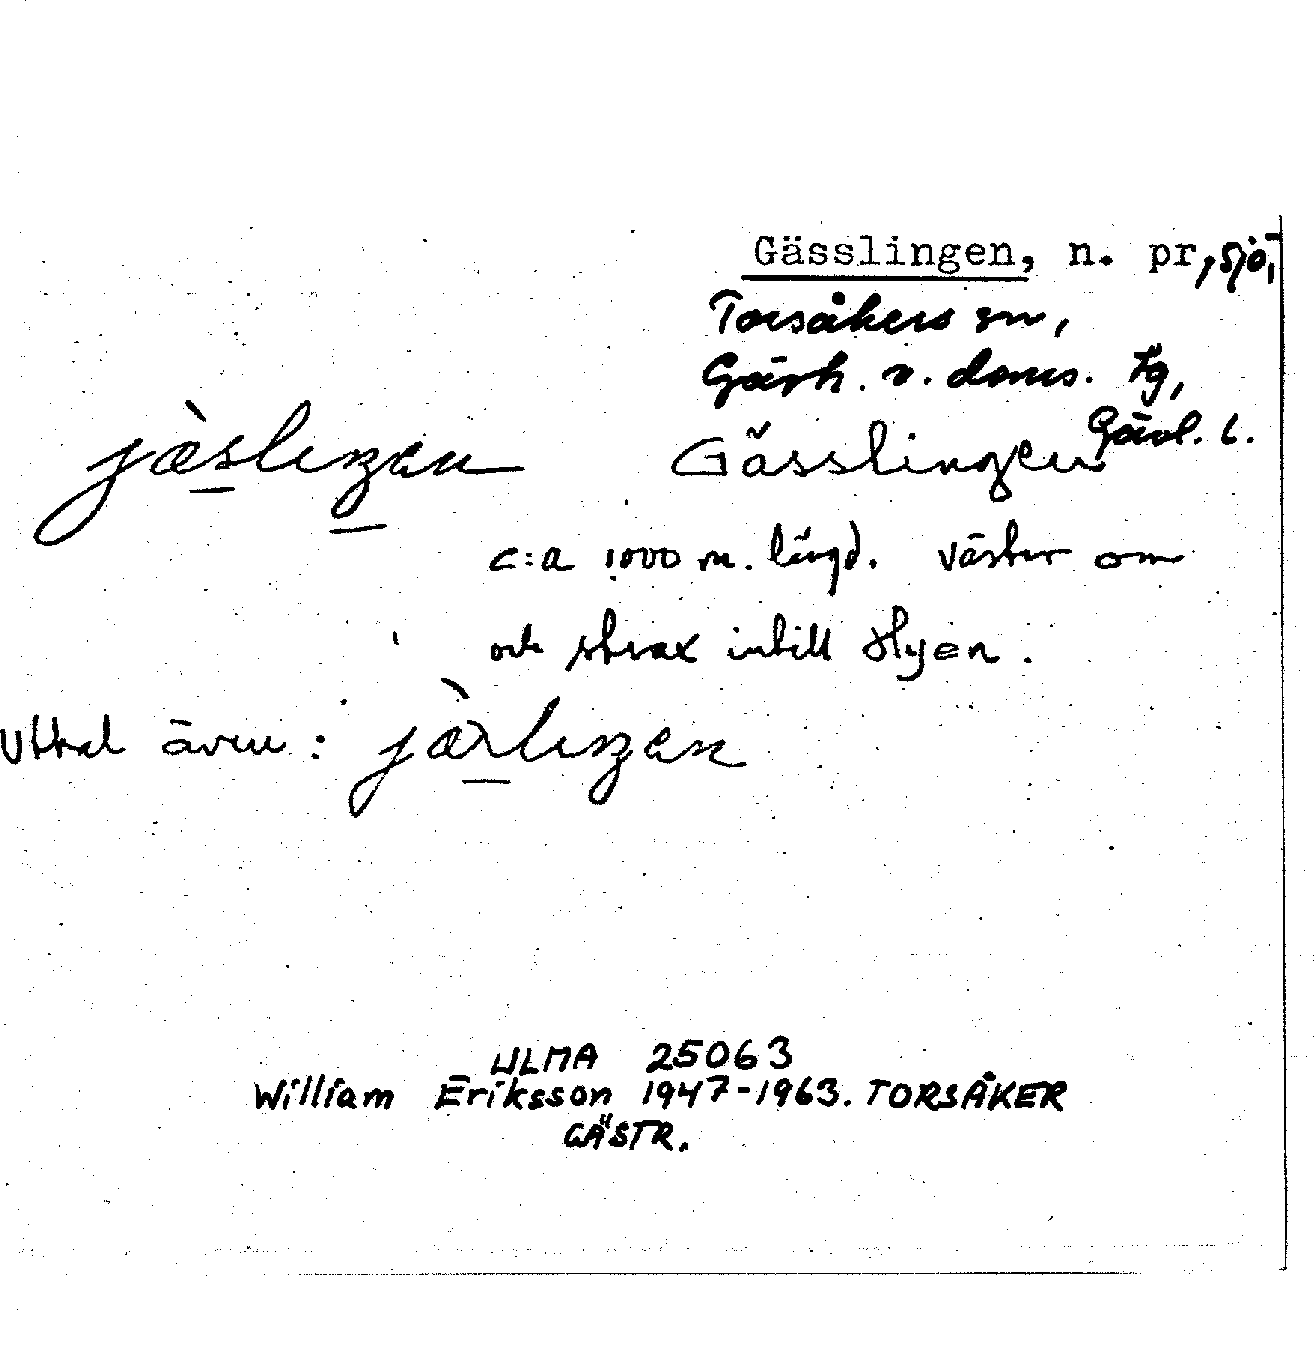 Gässlingen, n. pr, sjö, i
Torsåkers sn,
Gästr. v. doms. tg,
Gävl. l.
jæ̀sleŋen Gässlingen
c:a 1000 m. längd. Väster om
och strax intill Hyen.
Uttal även: jæ̀rleŋen
ULMA 25063
William Eriksson 1947-1963. TORSÅKER
GÄSTR.